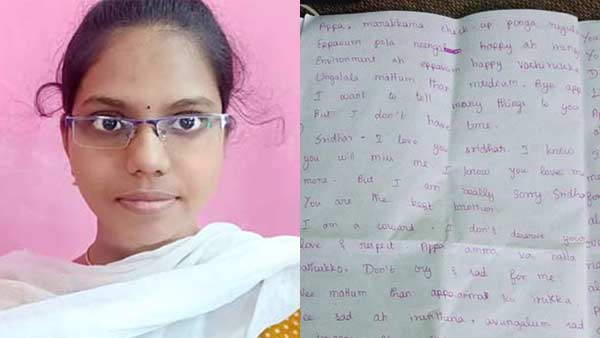 Appa, marakkama check up ponga regula
Eppavum pola neenga happy ah
Environment ah eppavum happy vachirukka
Ungalala mattum than mudium. Bye app
I want to tell many things to you
But I don't have time.
Sridhar - I love you sridhar. I know
you will miss me. I know you love me
more. But I am really sorry Sridha
You are the best brother.
I am a coward. I don't deserve your
love & respect. Appa amma va nalla
athukko. Don't cry & sad for me.
ee mattum than appa amma ku irukka
ee sad ah iruntheena, avungalum sad